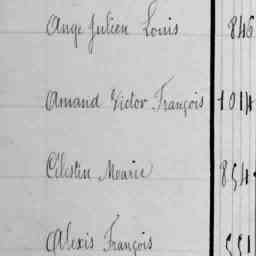 Ange Julien Louis 846
Amand Victor François 1014
Célestin Marie 854
Alexis François 551